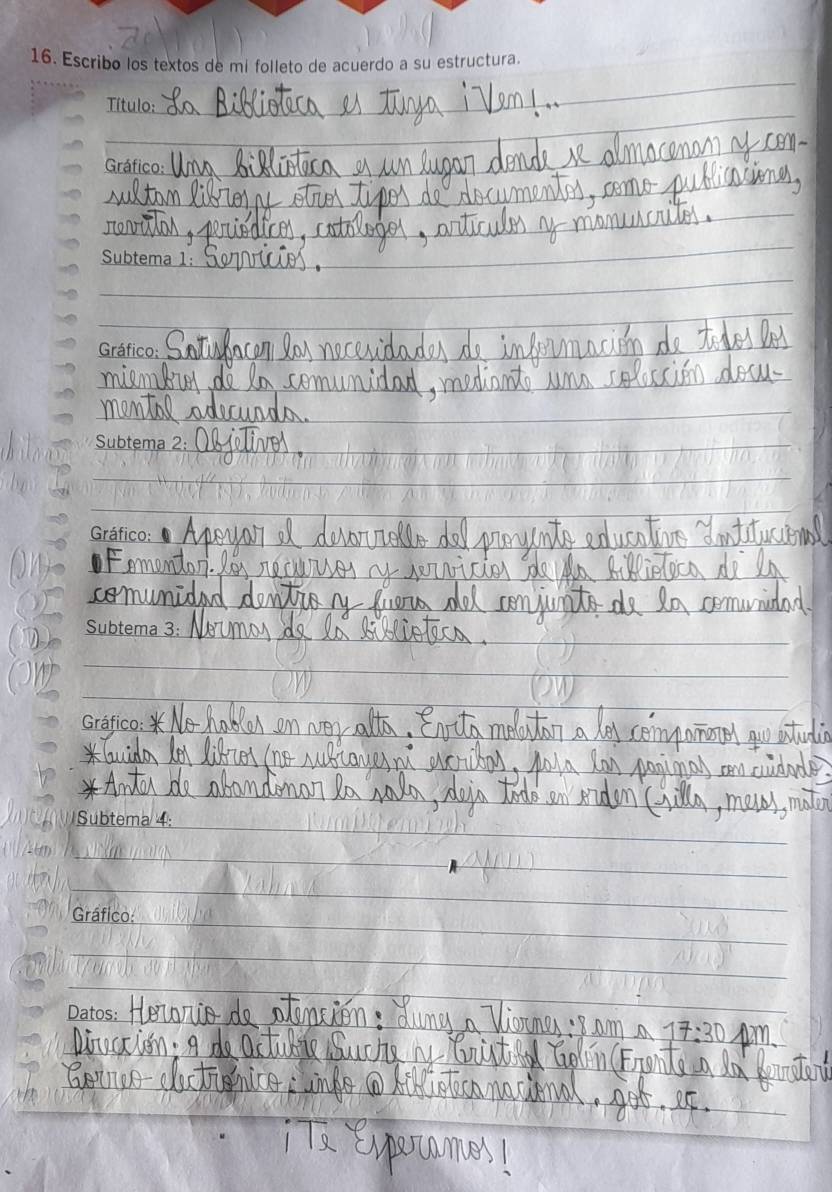 16. Escribo los textos de mi folleto de acuerdo a su estructura.
Título: La Biblioteca es tuya ¡Ven!..
Gráfico: Una biblioteca es un lugar donde se almacenan y con-
sultan libros y otros tipos de documentos, como publicaciones,
revistas, periódicos, catologos, artículos y manuscritos.
Subtema 1: Servicios.
Gráfico: Satisfacer las necesidades de información de todos los
miembros de la comunidad, mediante una colección docu-
mental adecuada.
Subtema 2: Objetivos.
Gráfico: • Apoyar el desarrollo del proyecto educativo Institucional
• Fomentar los recursos y servicios de la biblioteca de la
comunidad dentro y fuera del conjunto de la comunidad.
Subtema 3: Normas de la biblioteca.
Gráfico: * No hables en voz alta. Evita molestar a los compañeros que estudia
* Cuida los libros (no subrayes ni escribas, pasa las paginas con cuidado)
* Antes de abandonar la sala, deja todo en orden (silla, mesas, mater
Subtema 4:
Gráfico:
Datos: Horario de atención: Lunes a Viernes: 8 am a 17:30 pm.
Dirección: 9 de Octubre Sucre y Cristobal Colón (Frente a la ferreterí
Correo electrónico: info@bibliotecanacional.gob.ec.
¡Te Esperamos!